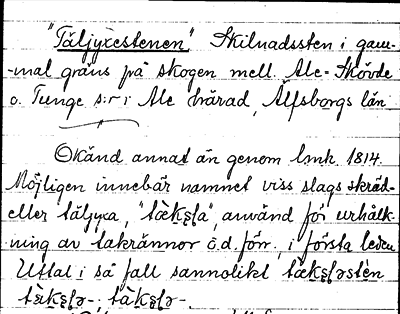 "Täljyxestenen" Skilnadssten i gam-
-mal gräns på skogen mell. Ale-Skövde
o. Tunge s:r i Ale härad, Älfsborgs län
Okänd annat än genom lmh. 1814.
Möjligen innebär namnet viss slags skräd-
eller täljyxa, "tä̀ḵşa", använd för urhålk-
ning av takrännor o.d. förr, i första leden
Uttal i så fall sannolikt